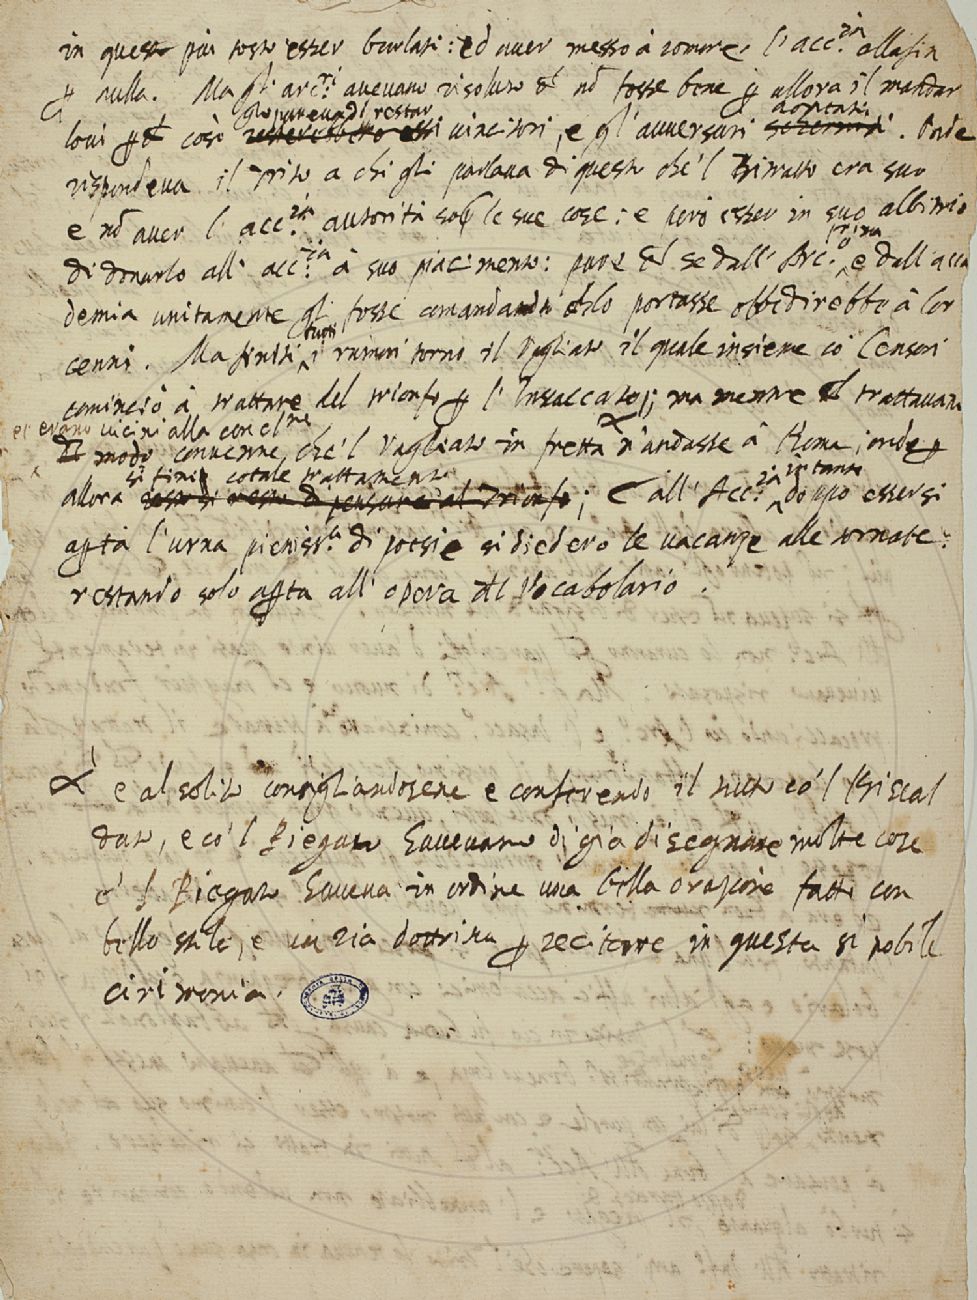 in questo più tosto esser burlati: ed aver messo à romore l'acc.ia alla fin
p nulla. Ma gli arc.i avevano risoluto che nõ fosse bene p allora il mandar
gli pareva di restar
lovi p che così vincitori, e gl'avversari . Onde
rispondeva il Trito a chi gli parlava di questo che'l Ritratto era suo
e nõ aver l'acc.ia autorità sop le sue cose: e però esser in suo albitrio
prima
di donarlo all'acc.ia à suo piacimento: pure che se dall'Arc.o e dall'acca
demia unitamente gli fosse comandando che lo portasse obbedirebbe à lor
tutti
cenni. Ma finiti i rumori torno il Vagliato il quale insieme cõ Censori
cominciò à trattare del trionfo p l'Insaccato; ma mentre che trattavano
et erano vicini alla concl.ne
convenne che'l Vagliato in fretta n'andasse à Roma; onde p
si finì cotale trattamento
allora resto di pensare al Trionfo; E all'Acc.ia doppo essersi
intanto
apta l'urna pieniss.a di poesie si diedero le vacanze alle tornate:
restando solo apta all'opera del Vocabolario.
e al solito consigliandosene e conferendo il tutto co'l Riscal
dato, e co'l Riegato havevano di già disegnate molte cose
e'l Riegato haveva in ordine una bella orazione fatta con
bello stile, e varia dottrina p recitare in questa sì nobile
cirimonia.